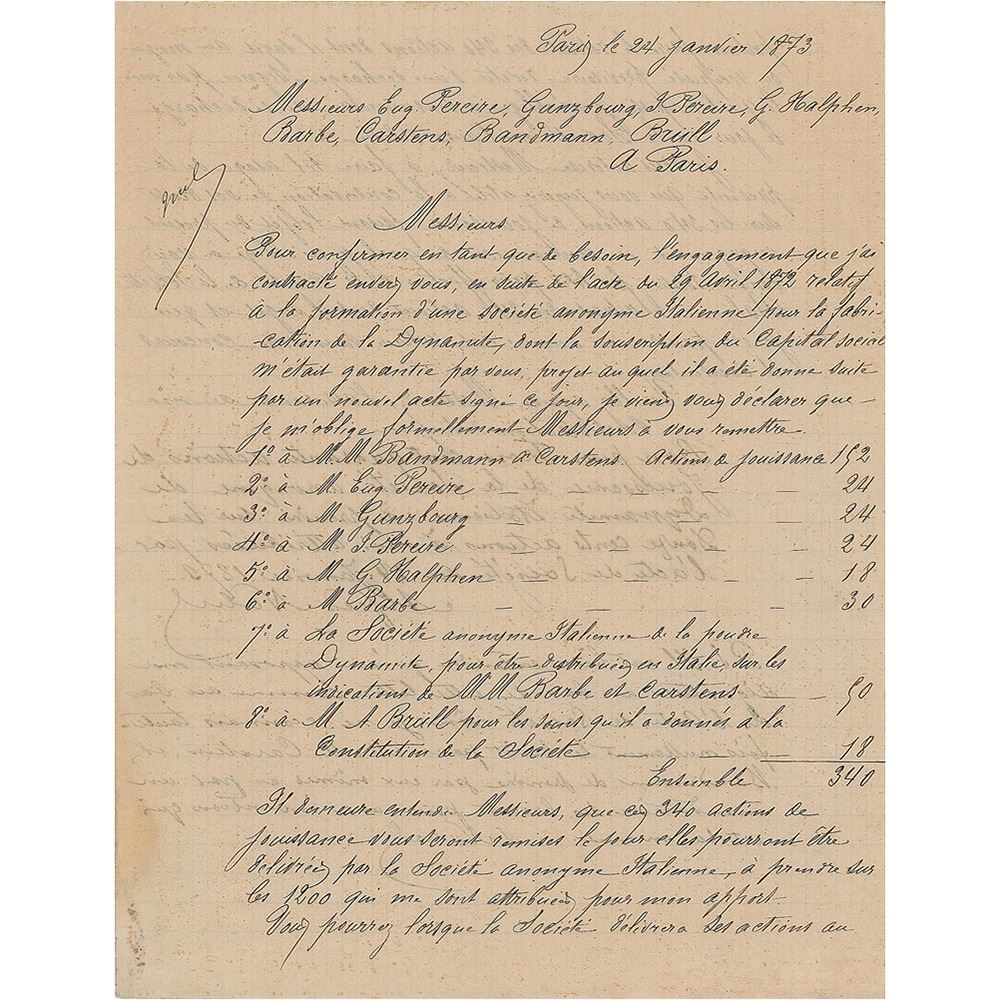 Paris le 24 janvier 1873
Messieurs Eug Pereire, Gunzbourg, I Pereire, G. Halphen,
Barbe, Carstens, Bandmann, Brüll
A Paris.
Messieurs
Pour confirmer en tant que de besoin, l'engagement que j'ai
contracté envers vous, en suite de l'acte du 29 Avril 1872 relatif
à la formation d'une société anonyme Italienne pour la fabri-
-cation de la Dynamite, dont la souscription du Capital social
m'était garantie par vous, projet auquel il a été donné suite
par un nouvel acte signé ce jour, je viens vous déclarer que
je m'oblige formellement Messieurs à vous remettre
1° à M.M Bandmann & Carstens. Actions de jouissance 152
2° à M. Eug. Pereire — — — 24
3° à M. Gunzbourg — — — 24
4° à M. I. Pereire — — — 24
5° à M. G. Halphen — — — 18
6° à M Barbe — — — — 30
7° à La Société anonyme Italienne de la poudre
Dynamite, pour être distribuées en Italie, sur les
indications de MM Barbe et Carstens — — 50
8° à M. A Brüll pour les soins qu'il a donnés à la
Constitution de la Société 18
Ensemble 340
Il demeure entendu Messieurs, que ces 340 actions de
jouissance vous seront remises le jour elles pourront être
délivrées par la Société anonyme Italienne, à prendre sur
les 1200 qui me sont attribuées pour mon apport.
Vous pourrez lorsque la Société délivrera des actions au